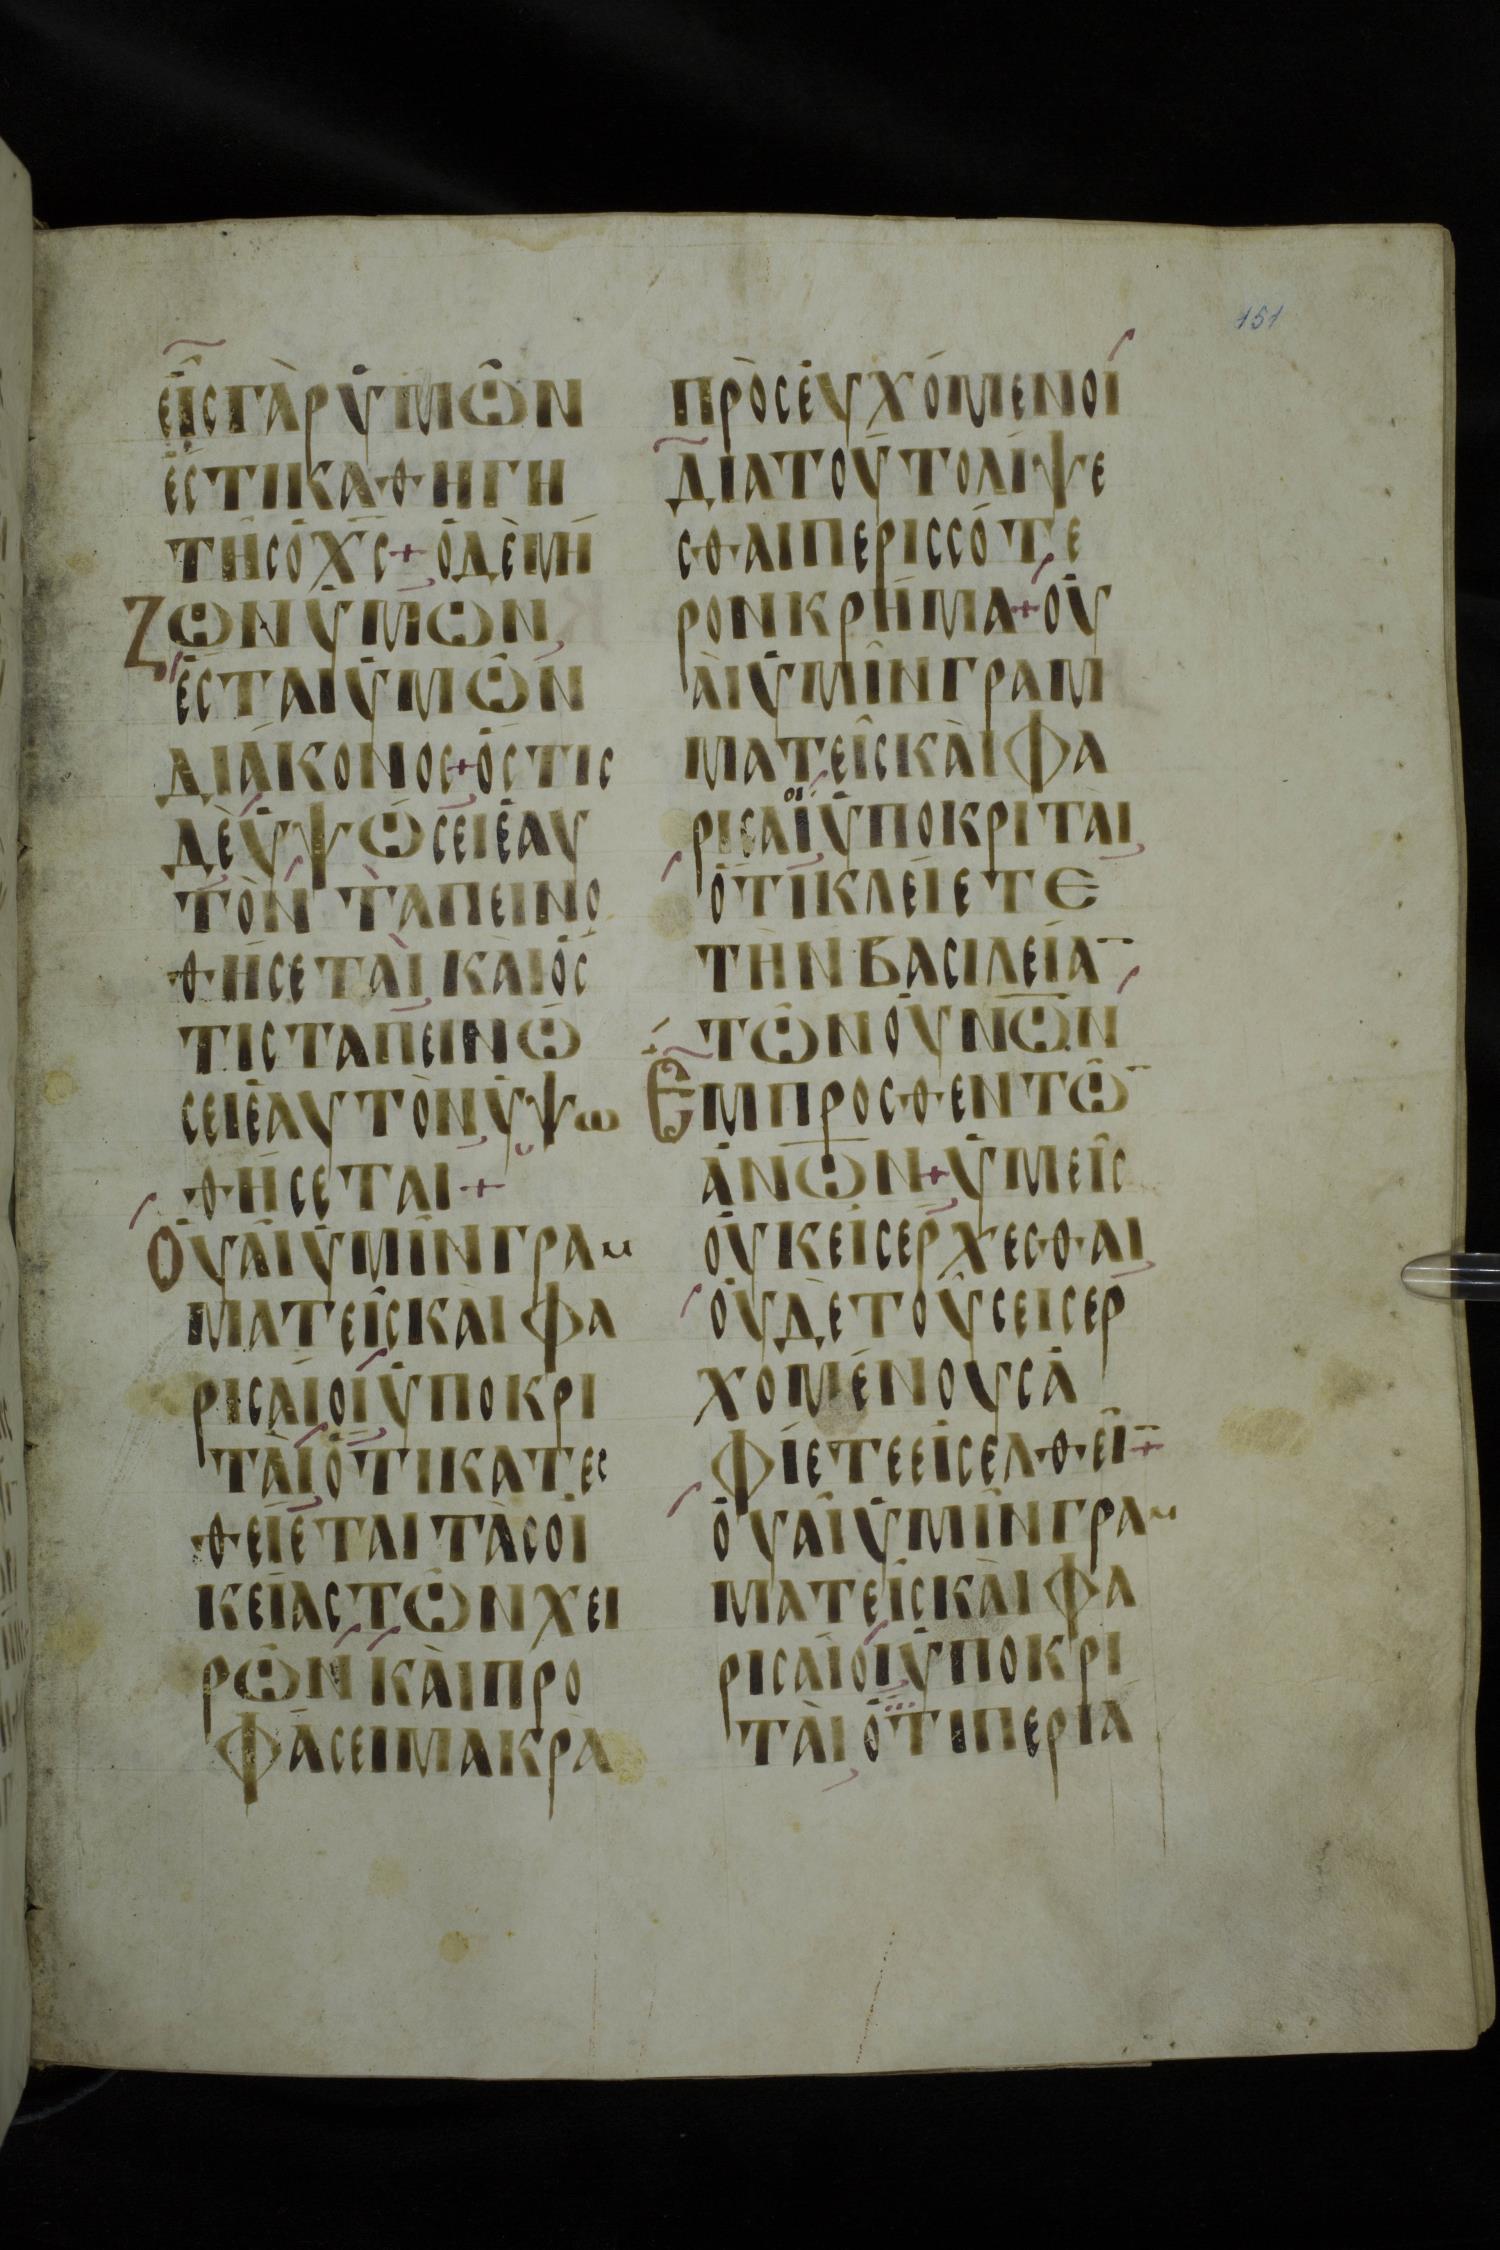 151
εἷς γὰρ ὑμῶν
ἐστὶ καθηγη
τὴς ὁ χ̅ς + ὁ δὲ μεί
ζων ὑμῶν
ἔσται ὑμῶν
διάκονος + ὅστις
δὲ ὑψώσει ἑαυ
τὸν ταπεινο
θήσεται καὶ ὅς
τις ταπεινώ
σει ἑαυτὸν ὑψω
θήσεται +
Οὐαὶ ὑμῖν γραμ
ματεῖς καὶ φα
ρισαίοι ὑποκρι
ταὶ ὅτι κατεσ
θείεται τὰς οἰ
κείας τῶν χει
ρῶν καὶ προ
φάσει μακρὰ
πρὸσευχόμενοι
διατοῦτο λίψε
σθαι περισσότε
ρον κρῆμα + οὐ
αὶ ὑμῖν γραμ
ματεῖς καὶ φα
ρισαῖοι ὑποκριταὶ
ὅτι κλείετε
τὴν βασιλεία̅
τῶν οὐν̅ω̅ν
Ἔμπροσθεν τῶ̅
ἀν̅ω̅ν + ὑμεῖς
οὐκ εἰσέρχεσθαι
οὐδὲ τοὺς εἰσερ
χομένους ἀ
φίετε εἰσελθεῖ̅ +
οὐαὶ ὑμῖν γραμ
ματεῖς καὶ φα
ρισαίοι ὑποκρι
ταὶ ὅτι περιά